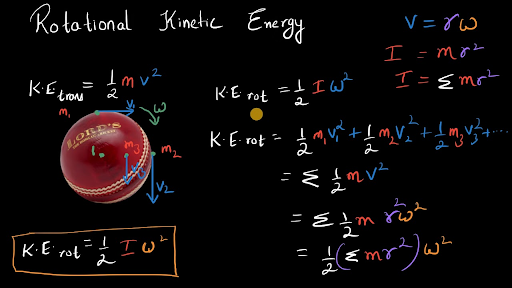 Rotational Kinetic Energy
v = rω
I = mr²
I = Σ mr²
K.E trans = 1/2 m v²
K.E rot = 1/2 I ω²
m₁ v₁ ω
LORD'S
m₃ m₂
v₂
K.E rot = 1/2 m₁v₁² + 1/2 m₂v₂² + 1/2 m₃v₃² + ...
= Σ 1/2 m v²
= Σ 1/2 m r²ω²
= 1/2 (Σ mr²) ω²
K.E. rot = 1/2 I ω²